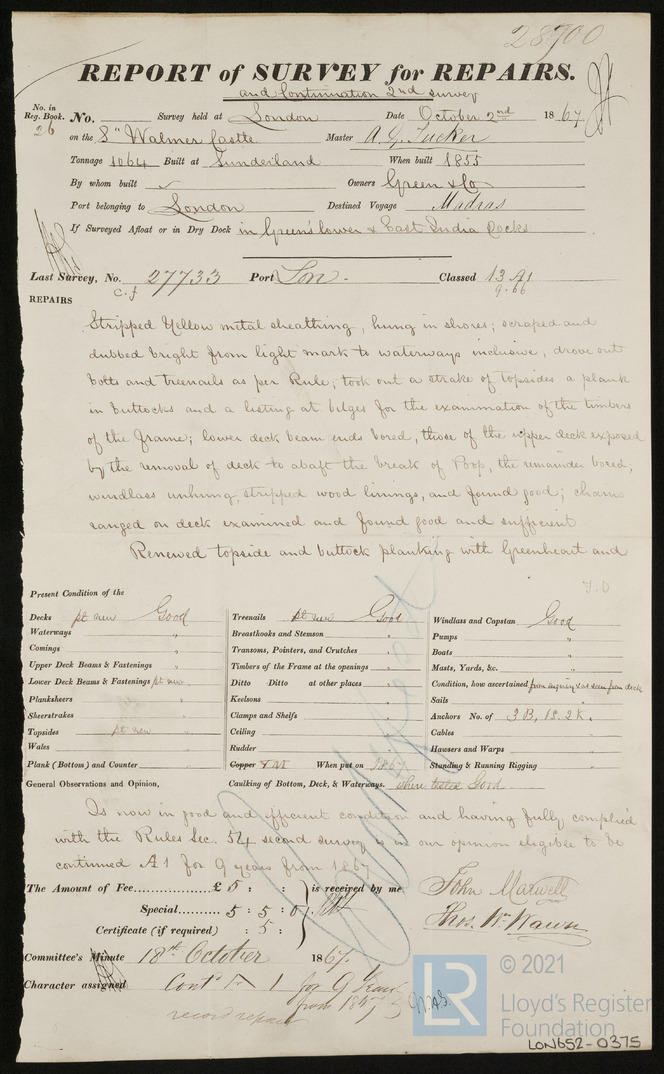 28900
REPORT of SURVEY for REPAIRS.
and Continuation 2nd survey
No. in Reg. Book. 26 No. Survey held at London Date October 2nd 1867
on the Sh Walmer Castle Master A. G. Tucker
Tonnage 1064 Built at Sunderland When built 1855
By whom built ✓ Owners Green & Co
Port belonging to London Destined Voyage Madras
If Surveyed Afloat or in Dry Dock in Green's lower & East India Docks
Last Survey, No. 27733 Port Lon. Classed 13 A1
c.f 9.66
REPAIRS
Stripped Yellow metal sheathing, hung in shores; scraped and
dubbed bright from light mark to waterways inclusive, drove out
bolts and treenails as per Rule; took out a strake of topsides a plank
in buttocks and a listing at bilges for the examination of the timbers
of the frame; lower deck beam ends bored, those of the upper deck exposed
by the removal of deck to abaft the break of Poop, the remainder bored;
windlass unhung, stripped wood linings, and found good; chains
ranged on deck examined and found good and sufficient
Renewed topside and buttock planking with Greenheart and
T.O
Present Condition of the
Decks pt new Good
Waterways "
Comings "
Upper Deck Beams & Fastenings "
Lower Deck Beams & Fastenings pt new "
Planksheers "
Sheerstrakes "
Topsides pt new "
Wales "
Plank (Bottom) and Counter "
Treenails pt new Good
Breasthooks and Stemson "
Transoms, Pointers, and Crutches "
Timbers of the Frame at the openings "
Ditto Ditto at other places "
Keelsons "
Clamps and Shelfs "
Ceiling "
Rudder "
Copper Y M When put on 1867
Caulking of Bottom, Deck, & Waterways. where tested Good
Windlass and Capstan Good
Pumps "
Boats "
Masts, Yards, &c. "
Condition, how ascertained from inquiry & as seen from deck
Sails "
Anchors No. of 3 B, 1 S. 2 K.
Cables "
Hawsers and Warps "
Standing & Running Rigging "
General Observations and Opinion,
Is now in good and efficient condition and having fully complied
with the Rules Sec. 54 second survey is in our opinion eligible to be
continued A1 for 9 years from 1867
The Amount of Fee £ 5 : : is received by me
Special 5 : 5 : 0
Certificate (if required) : 5 :
John Maxwell
Thos. Wm Wawn
Committee's Minute 18th October 1867.
Character assigned Contd A 1 for 9 Years
from 1867
record repair
© 2021
LR
Lloyd's Register
Foundation
LON652-0375